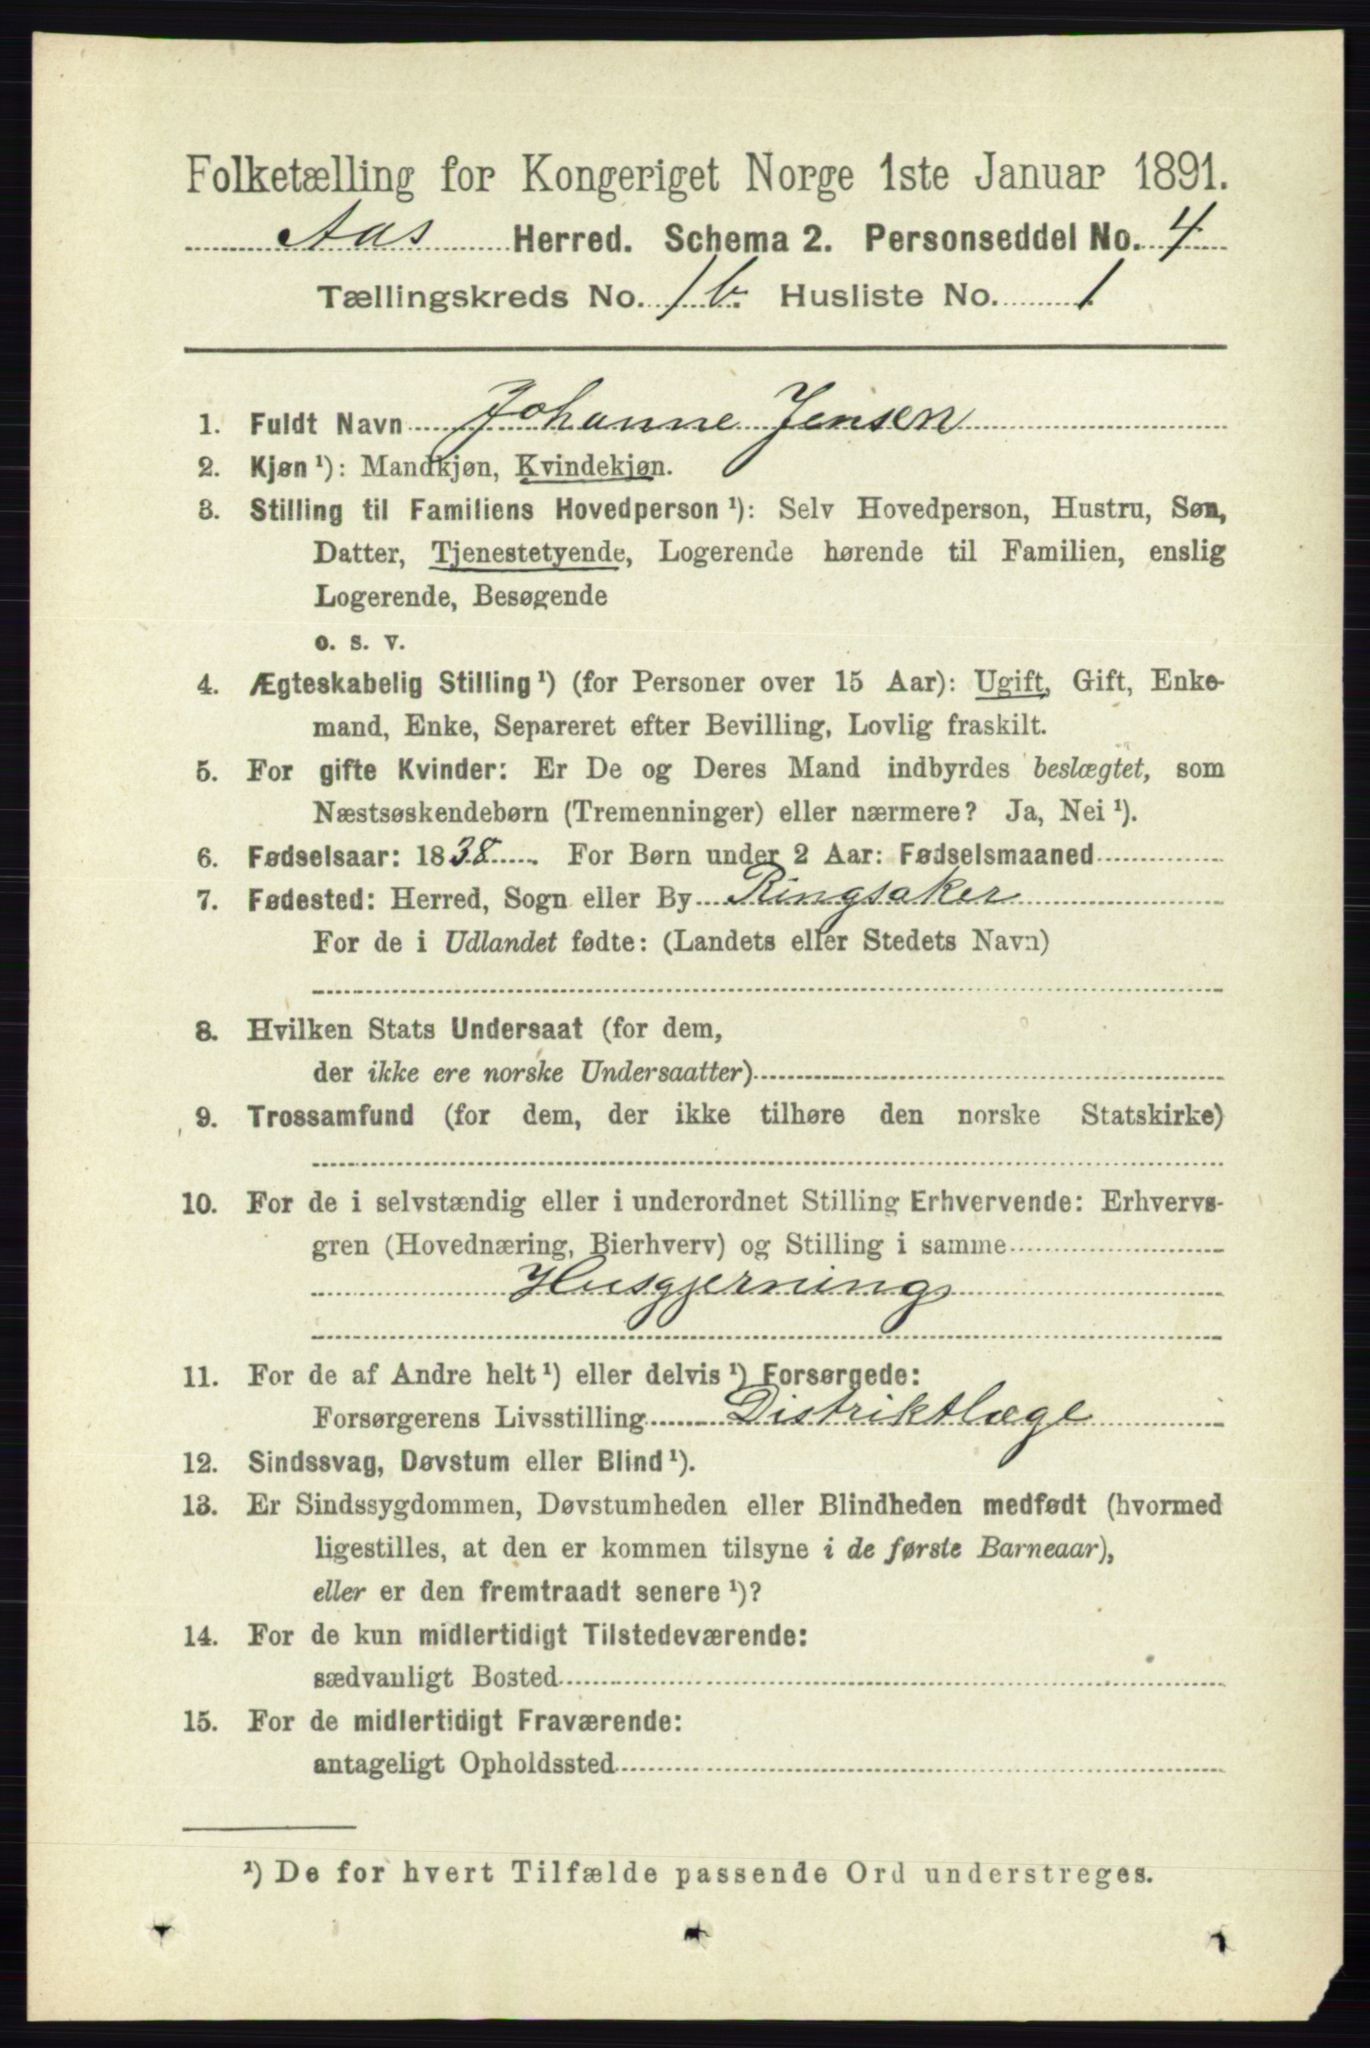 Folketælling for Kongeriget Norge 1ste Januar 1891.
Aas Herred. Schema 2. Personseddel No. 4
Tællingskreds No. 1b. Husliste No. 1
1. Fuldt Navn Johanne Jensen
2. Kjøn ¹): Mandkjøn, Kvindekjøn.
3. Stilling til Familiens Hovedperson ¹): Selv Hovedperson, Hustru, Søn,
Datter, Tjenestetyende, Logerende hørende til Familien, enslig
Logerende, Besøgende
o. s. v.
4. Ægteskabelig Stilling ¹) (for Personer over 15 Aar): Ugift, Gift, Enke-
mand, Enke, Separeret efter Bevilling, Lovlig fraskilt.
5. For gifte Kvinder: Er De og Deres Mand indbyrdes beslægtet, som
Næstsøskendebørn (Tremenninger) eller nærmere? Ja, Nei ¹).
6. Fødselsaar: 1838. For Børn under 2 Aar: Fødselsmaaned
7. Fødested: Herred, Sogn eller By Ringsaker
For de i Udlandet fødte: (Landets eller Stedets Navn)
8. Hvilken Stats Undersaat (for dem,
der ikke ere norske Undersaatter)
9. Trossamfund (for dem, der ikke tilhøre den norske Statskirke)
10. For de i selvstændig eller i underordnet Stilling Erhvervende: Erhvervs-
gren (Hovednæring, Bierhverv) og Stilling i samme
Husgjerning
11. For de af Andre helt ¹) eller delvis ¹) Forsørgede:
Forsørgerens Livsstilling Distriktlæge
12. Sindssvag, Døvstum eller Blind ¹).
13. Er Sindssygdommen, Døvstumheden eller Blindheden medfødt (hvormed
ligestilles, at den er kommen tilsyne i de første Barneaar),
eller er den fremtraadt senere ¹)?
14. For de kun midlertidigt Tilstedeværende:
sædvanligt Bosted
15. For de midlertidigt Fraværende:
antageligt Opholdssted
¹) De for hvert Tilfælde passende Ord understreges.